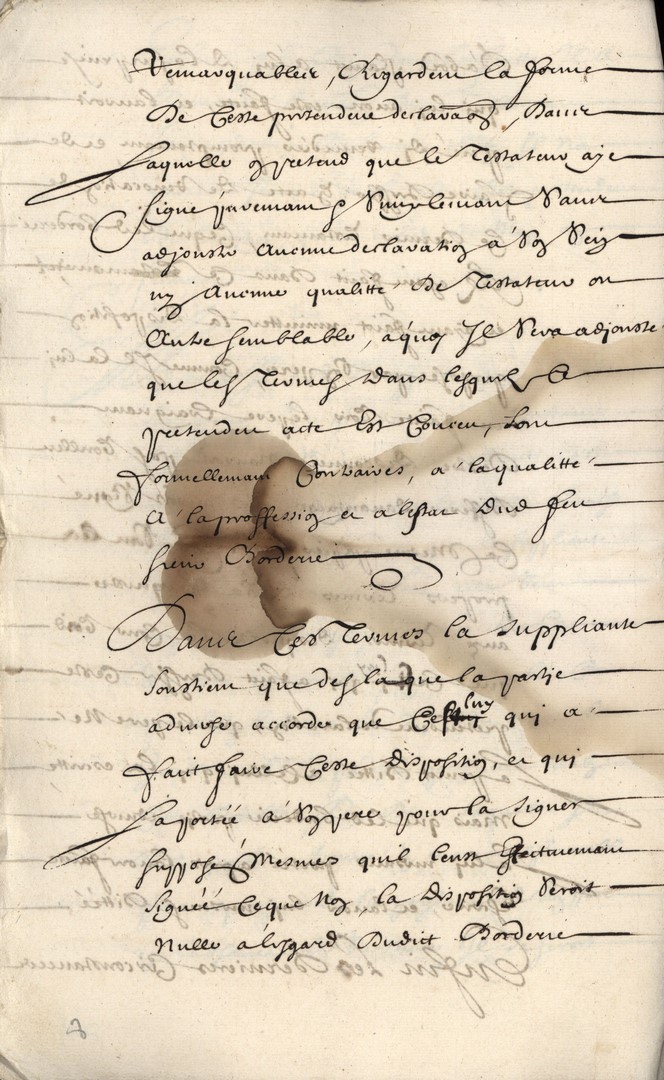 remarquables, Regardent la forme
De Ceste pretendue declaraõn, Dans
Laquelle on pretend que le Testateur aye
signé purement & Simplement Sans
adjouster Aucune declaration a Son Sein
ny Aucune qualitté De Testateur ou
Autre semblable, a quoy Il Sera adjousté
que les Termes Dans lesquels le
pretendu acte Est Conceu, sont
formellement Contraires, a la qualitté
A la proffession et a lestat Dud feu
sieur Borderie
Dans Ces Termes la suppliante
soustient que des la que la partie
adverse accorde que Celluy qui a
faict faire Ceste disposition, et qui
La portée a Son pere pour la signer
supposé Mesmes quil leust Effectivement
signéé Ce que Non, la disposition Seroit
Nulle a lesgard Dudict Borderie